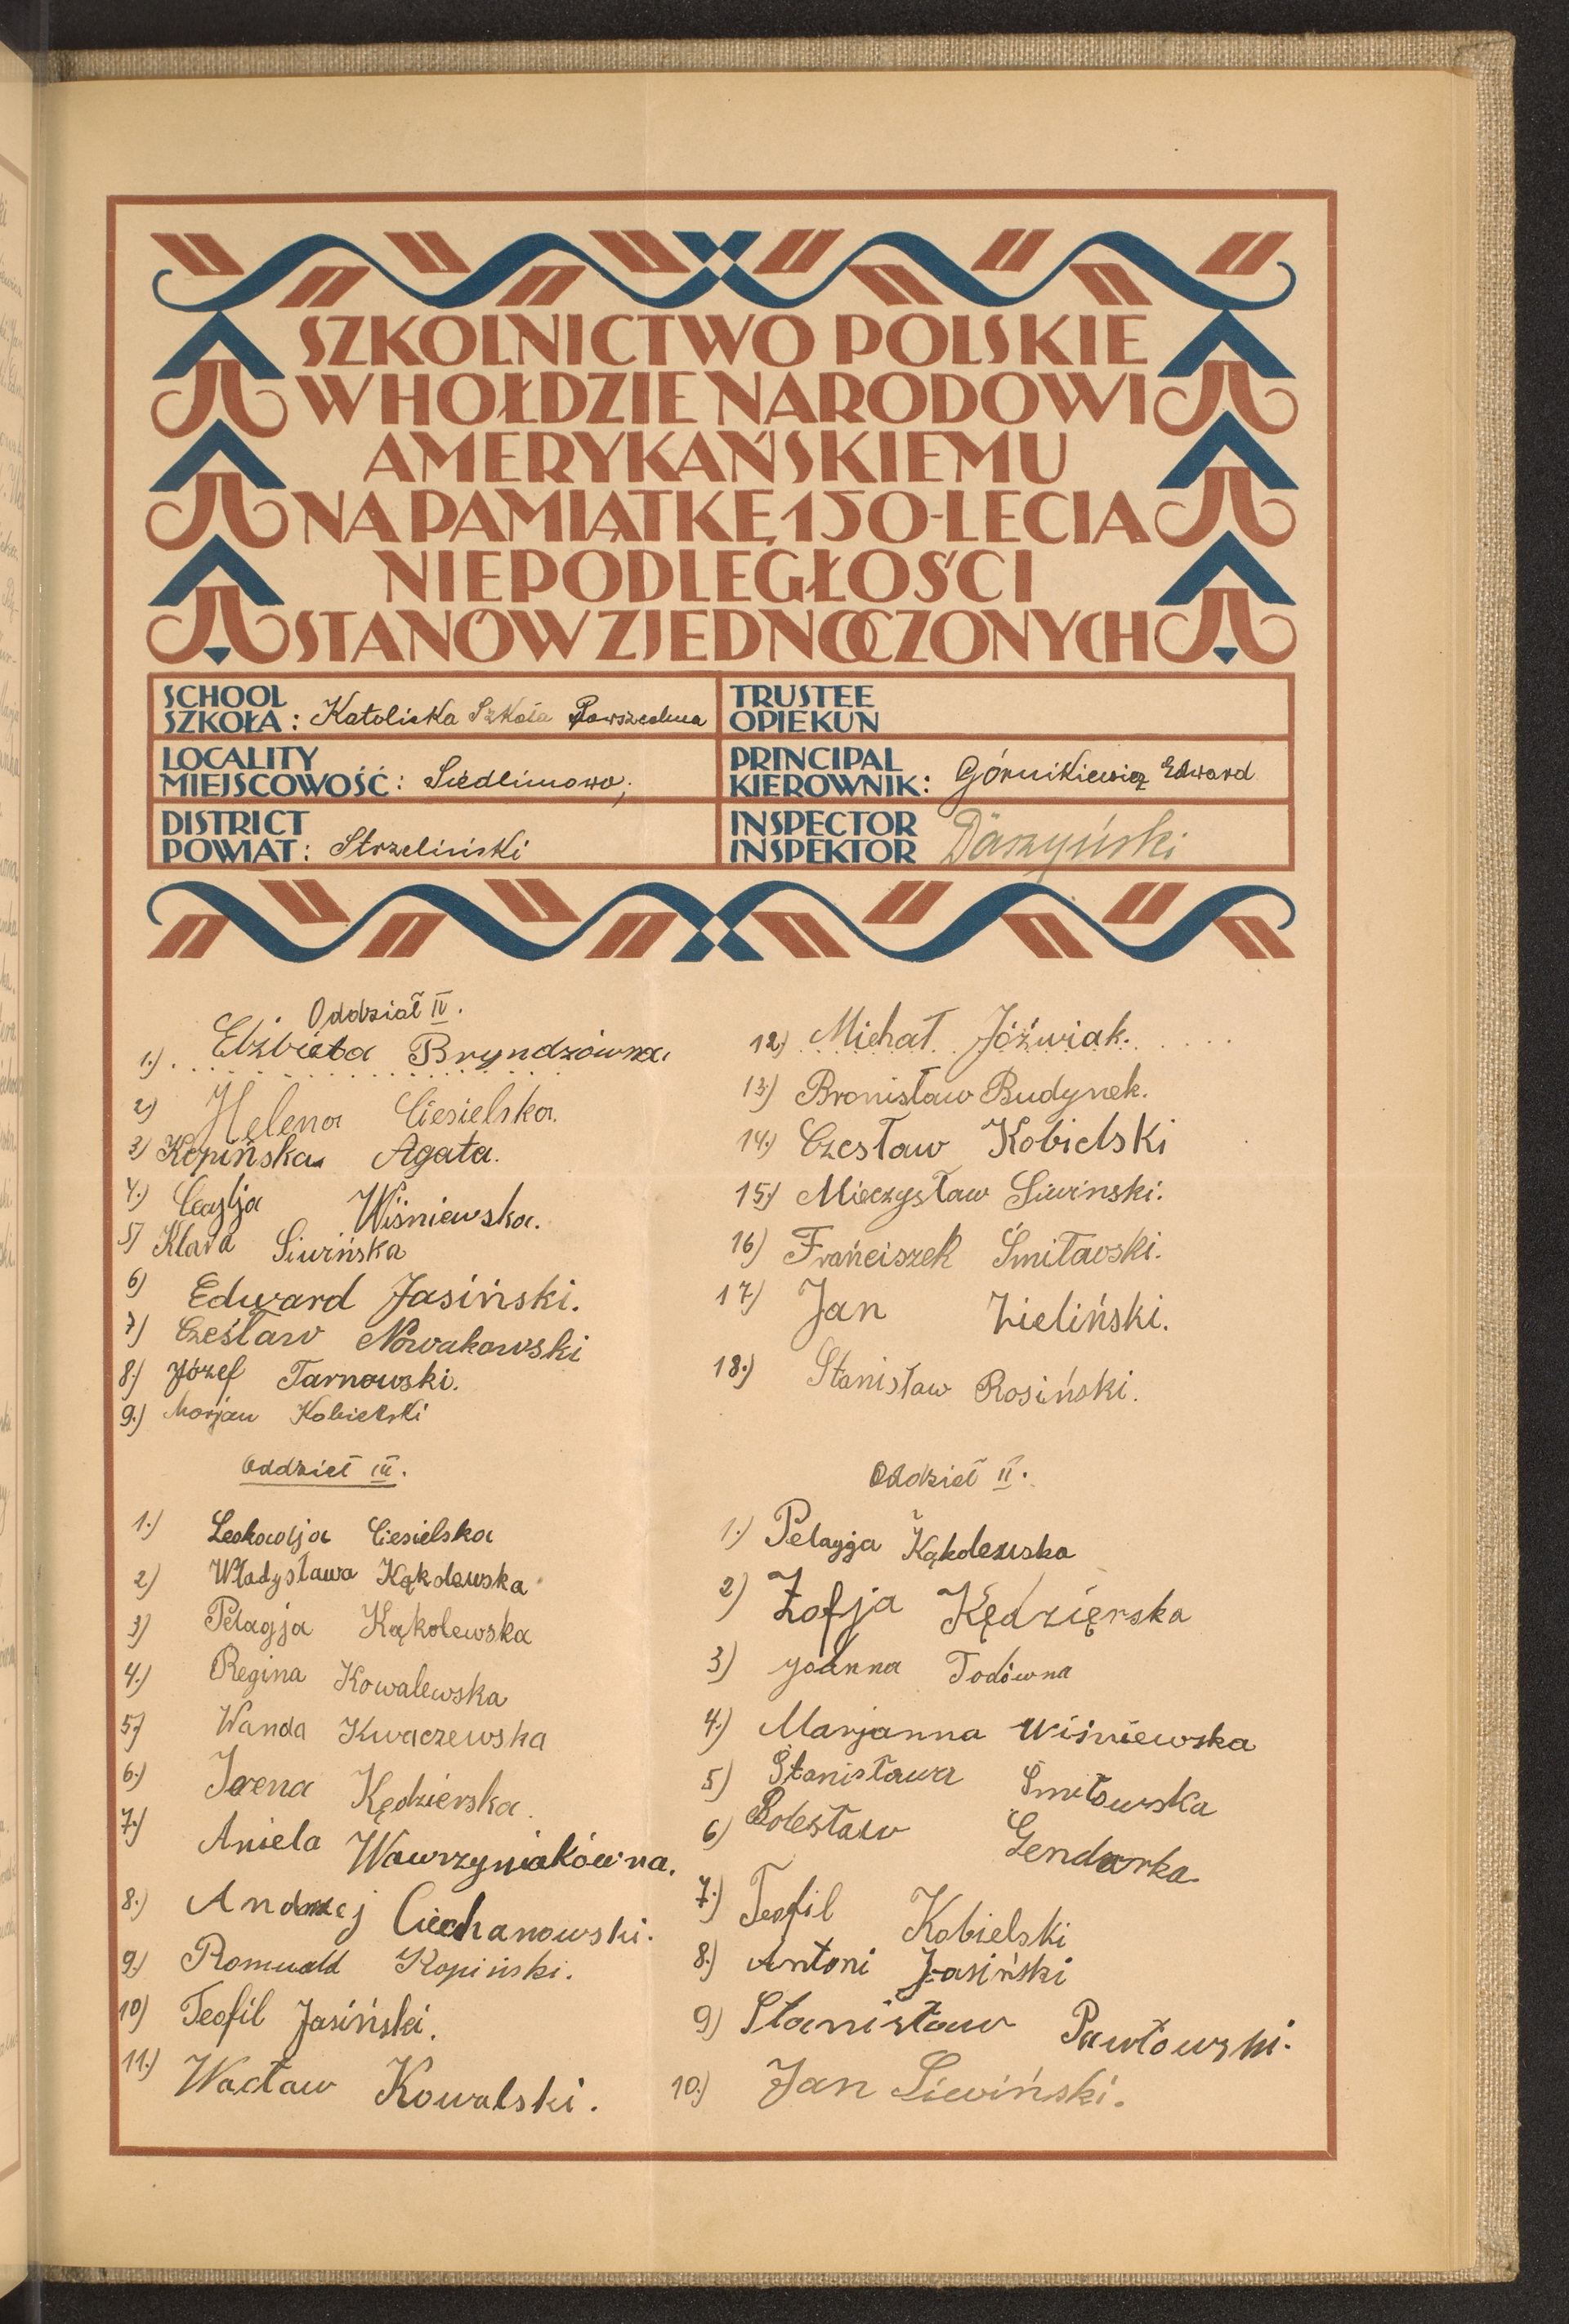 SZKOLNICTWO POLSKIE
W HOŁDZIE NARODOWI
AMERYKAŃSKIEMU
NA PAMIĄTKĘ 150-LECIA
NIEPODLEGŁOŚCI
STANÓW ZJEDNOCZONYCH
SCHOOL
SZKOŁA: Katolicka Szkoła Powszechna
TRUSTEE
OPIEKUN
LOCALITY
MIEJSCOWOŚĆ: Siedlimowo;
PRINCIPAL
KIEROWNIK: Górnikiewicz Edward
DISTRICT
POWIAT: Strzeliński
INSPECTOR
INSPEKTOR Daszyński
Oddział IV.
1.) Elżbieta Bryndzówna.
2) Helena Ciesielska.
3) Kopińska Agata.
4.) Cecylja Wiśniewska.
5) Klara Siwińska
6) Edward Jasiński.
7) Czesław Nowakowski
8.) Józef Tarnowski.
9.) Marjan Kobielski
12) Michał Jóźwiak.
13) Bronisław Budynek.
14.) Czesław Kobielski
15.) Mieczysław Siwinski.
16) Frańciszek Śmiławski.
17) Jan Zieliński.
18.) Stanisław Rosiński.
Oddział III.
1.) Leokadja Ciesielska
2) Władysława Kąkolewska
3) Pelagja Kąkolewska
4.) Regina Kowalewska
5) Wanda Kwaczewska
6.) Irena Kędzierska.
7.) Aniela Wawrzyniakówna.
8.) Andrzej Ciechanowski.
9.) Romuald Kopiński.
10) Teofil Jasiński.
11.) Wacław Kowalski.
Oddział II.
1.) Pelagja Kąkolewska
2) Zofja Kędzięrska
3) Joanna Todówna
4.) Marjanna Wiśniewska
5) Stanisława Śmiłowska
6) Bolesław Gendarka
7.) Teofil Kobielski
8.) Antoni Jasiński
9) Stanisław Pawłowski.
10.) Jan Siewiński.